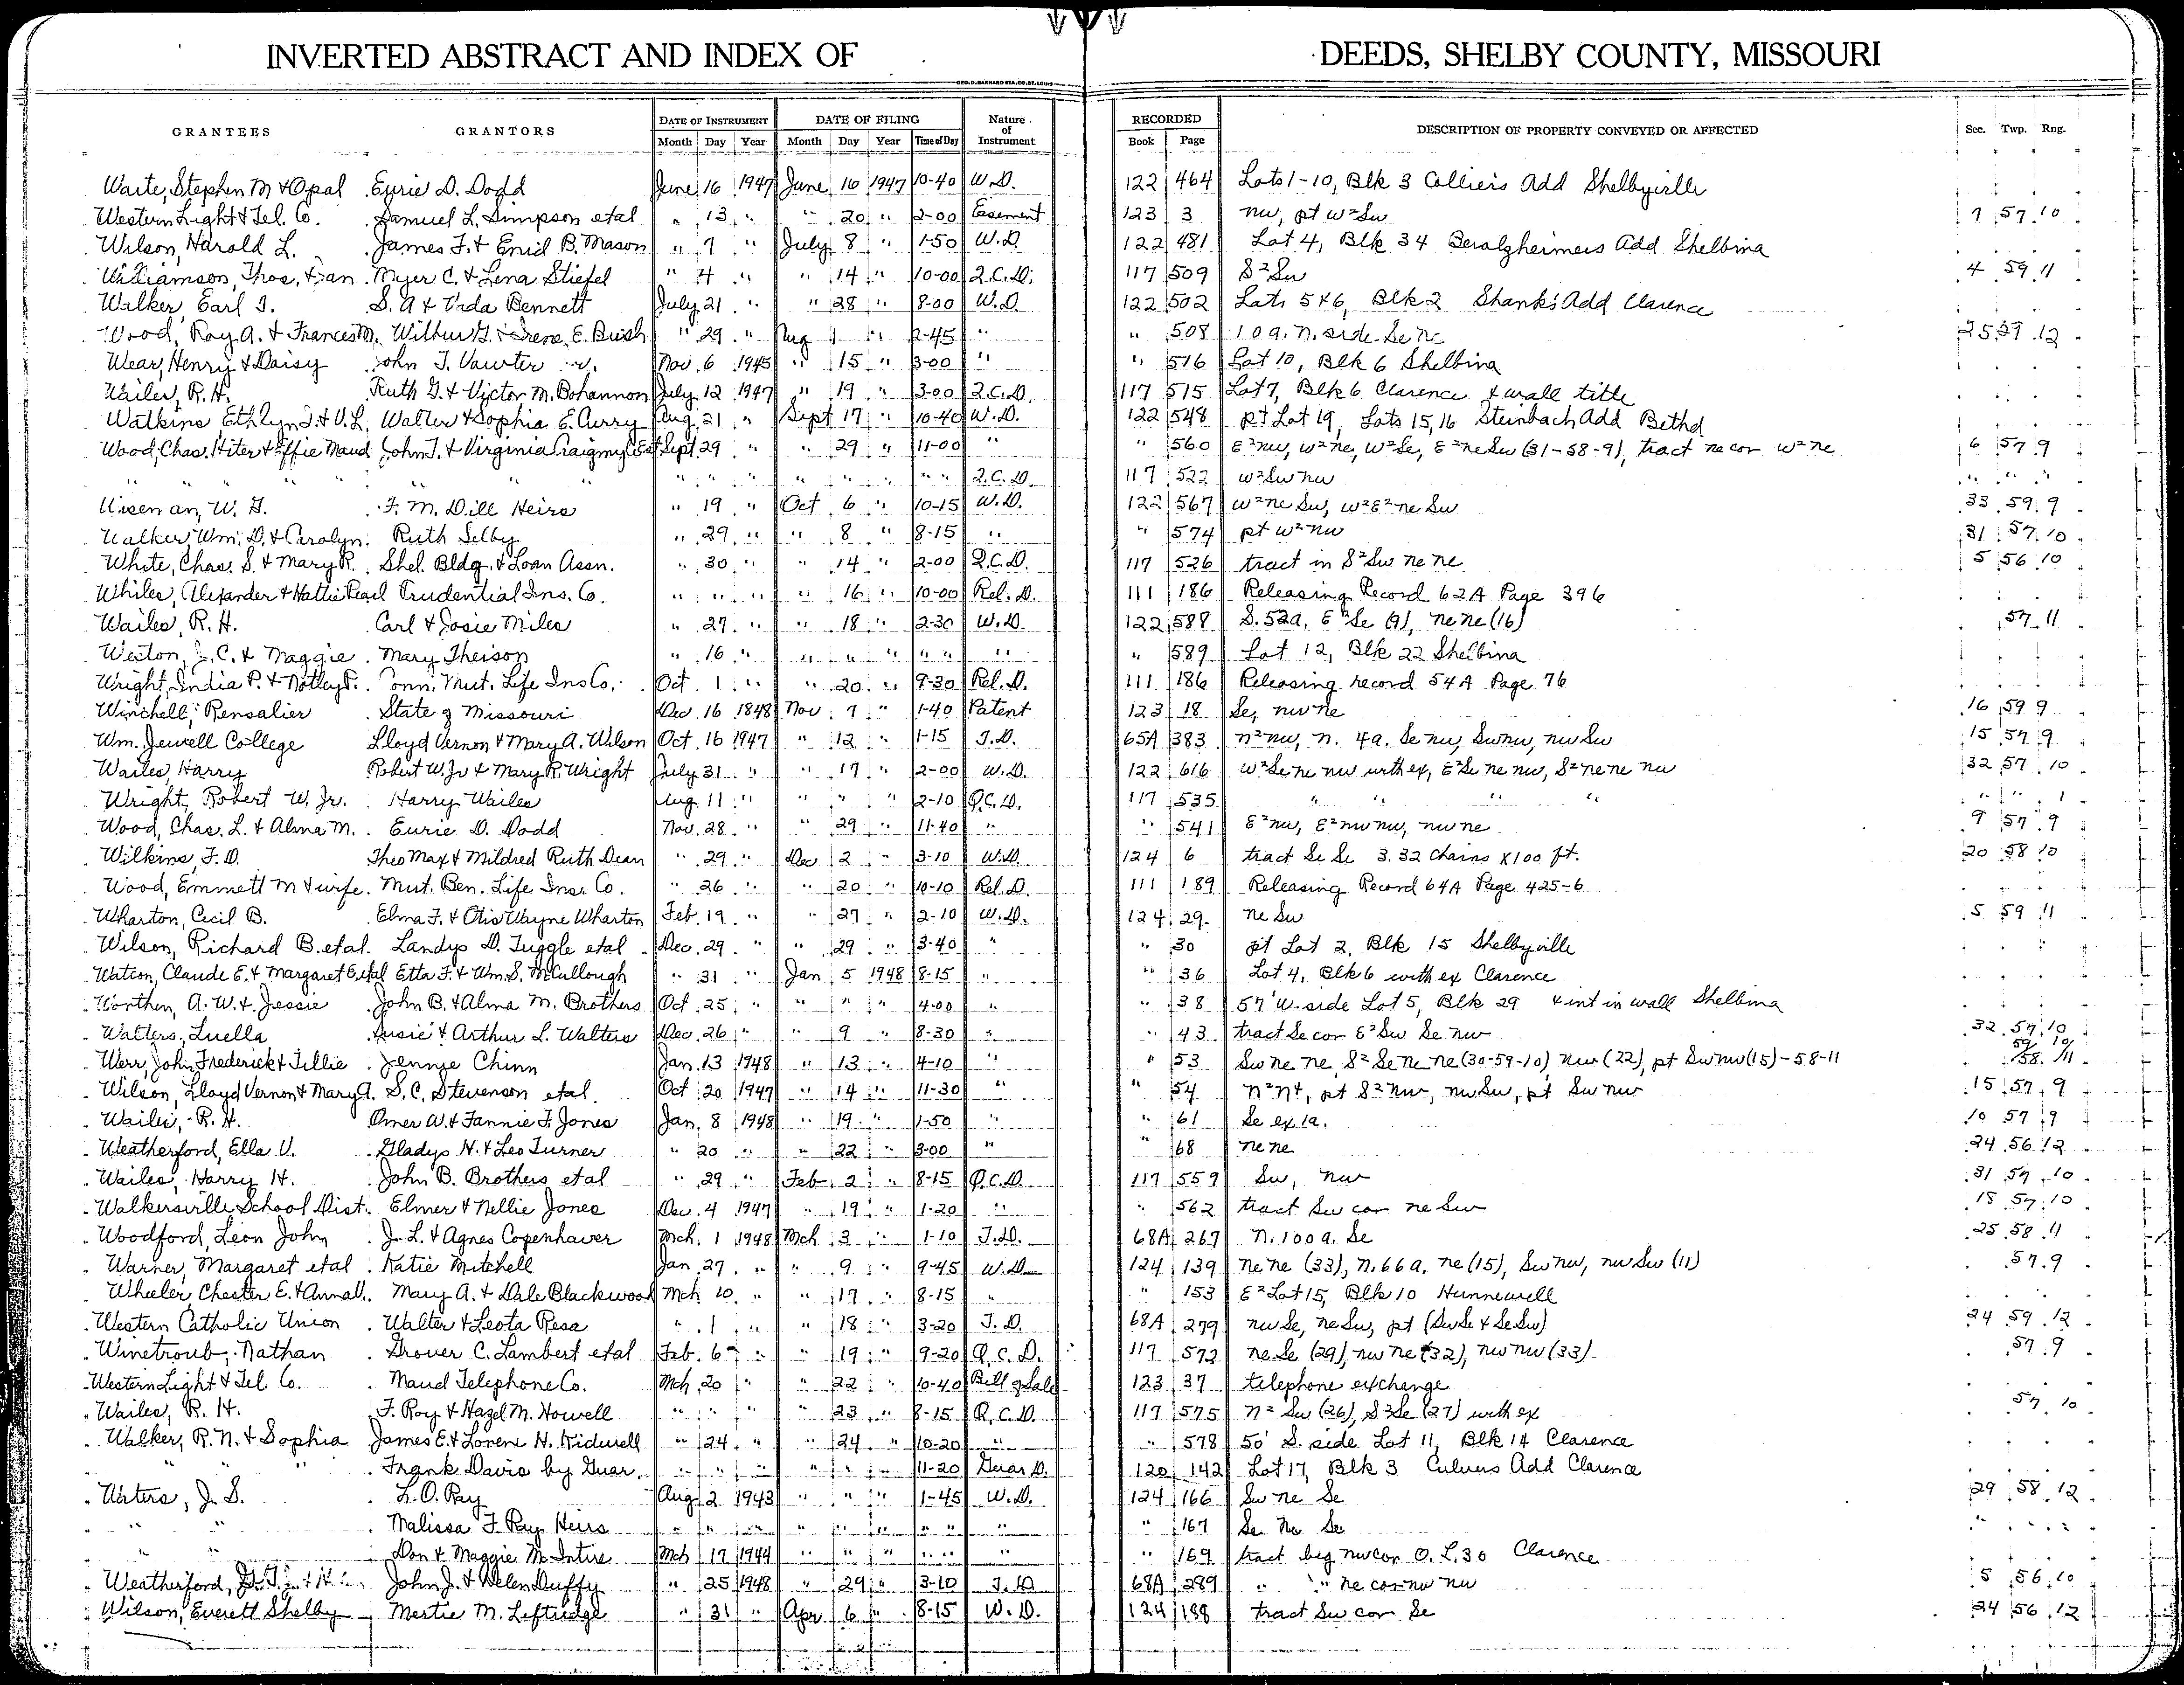 INVERTED ABSTRACT AND INDEX OF DEEDS, SHELBY COUNTY, MISSOURI
GEO.D.BARNARD STA.CO.ST.LOUIS
GRANTEES GRANTORS DATE OF INSTRUMENT DATE OF FILING Nature of Instrument RECORDED DESCRIPTION OF PROPERTY CONVEYED OR AFFECTED Sec. Twp. Rng.
Month Day Year Month Day Year Time of Day Book Page
Waite, Stephen M & Opal Eurie D. Dodd June 16 1947 June 16 1947 10-40 W.D. 122 464 Lots 1-10, Blk 3 Colliers Add Shelbyville
Western Light & Tel. Co. Samuel L. Simpson etal " 13 " " 20 " 2-00 Easement 123 3 nw, pt w²Sw 7 57 10
Wilson, Harold L. James F. & Enid B. Mason " 7 " July 8 " 1-50 W.D. 122 481 Lot 4, Blk 34 Beralzheimers Add Shelbina
Williamson, Thos. & Fan Myer C. & Lena Stiefel " 4 " " 14 " 10-00 Q.C.D. 117 509 S²Sw 4 59 11
Walker, Earl J. S. A & Vada Bennett July 21 " " 28 " 8-00 W.D. 122 502 Lots 5 & 6, Blk 2 Shank's Add Clarence
Wood, Roy A. & Frances M. Wilbur G. & Irene E. Bush " 29 " Aug 1 " 2-45 " " 508 10 a. n. side Se ne 12
Wear, Henry & Daisy John T. Vawter Nov. 6 1945 " 15 " 3-00 " " 516 Lot 10, Blk 6 Shelbina
Wailes, R. H. Ruth G. & Victor M. Bohannon July 12 1947 " 19 " 3-00 Q.C.D. 117 515 Lot 7, Blk 6 Clarence & wall title
Watkins Ethlyn J. & V. L. Walter & Sophia E. Curry Aug. 21 " Sept 17 " 10-40 W.D. 122 548 pt Lot 19, Lots 15, 16 Steinbach Add Bethel
Wood, Chas. Hiter & Effie Maud John T. & Virginia Craigmyle Est Sept 29 " " 29 " 11-00 " " 560 E²nw, w²ne, w²Se, E²neSw (31-58-9), tract ne cor w²ne 6 57 9
" " " " " " " " " " " " " Q.C.D. 117 522 w²Sw nw " " "
Wiseman, W. G. F. M. Dill Heirs " 19 " Oct 6 " 10-15 W.D. 122 567 w²ne Sw, w²E²ne Sw 33 59 9
Walker, Wm. D. & Carolyn Ruth Selby " 29 " " 8 " 8-15 " " 574 pt w²nw 31 57 10
White, Chas. S. & Mary R. Shel. Bldg. & Loan Assn. " 30 " " 14 " 2-00 Q.C.D. 117 526 tract in S²Sw ne ne 5 56 10
Whiles, Alexander & Hattie Pearl Prudential Ins. Co. " " " " 16 " 10-00 Rel. D. 111 186 Releasing Record 62A Page 396
Wailes, R. H. Carl & Josie Miles " 27 " " 18 " 2-30 W.D. 122 588 S. 52a, E²Se (9), ne ne (16) 57 11
Weston, J. C. & Maggie Mary Theison " 16 " " " " " " " " 589 Lot 12, Blk 22 Shelbina
Wright, India P. & Notley P. Conn. Mut. Life Ins Co. Oct. 1 " " 20 " 9-30 Rel. D. 111 186 Releasing record 54A Page 76
Winchell, Rensalier State of Missouri Dec 16 1848 Nov. 7 " 1-40 Patent 123 18 Se, nw ne 16 59 9
Wm. Jewell College Lloyd Vernon & Mary A. Wilson Oct. 16 1947 " 12 " 1-15 T.D. 65A 383 n²nw, n. 4a. Se nw, Sw nw, nw Sw 15 57 9
Wailes, Harry Robert W. Jr & Mary R. Wright July 31 " " 17 " 2-00 W.D. 122 616 w²Se ne nw with ex, E²Se ne nw, S²ne ne nw 32 57 10
Wright, Robert W. Jr. Harry Wailes Aug. 11 " " " " 2-10 Q.C.D. 117 535 " " " " " " "
Wood, Chas. L. & Alma M. Eurie D. Dodd Nov. 28 " " 29 " 11-40 " " 541 E²nw, E²nw nw, nw ne 9 57 9
Wilkins, F. D. Theo Max & Mildred Ruth Dean " 29 " Dec 2 " 3-10 W.D. 124 6 tract Se Se 3.32 Chains X 100 ft. 20 58 10
Wood, Emmett M & wife Mut. Ben. Life Ins. Co. " 26 " " 20 " 10-10 Rel. D. 111 189 Releasing Record 64A Page 425-6
Wharton, Cecil B. Elma F. & Otis Wayne Wharton Feb. 19 " " 27 " 2-10 W.D. 124 29 ne Sw 5 59 11
Wilson, Richard B. etal. Landys D. Tuggle etal Dec. 29 " " 29 " 3-40 " " 30 pt Lot 2, Blk 15 Shelbyville
Watson, Claude E. & Margaret E etal Etta F. & Wm. S. McCullough " 31 " Jan 5 1948 8-15 " " 36 Lot 4, Blk 6 with ex Clarence
Worthen, A. W. & Jessie John B. & Alma M. Brothers Oct. 25 " " " " 4-00 " " 38 57' W. side Lot 5, Blk 29 & int in wall Shelbina
Walters, Luella Susie & Arthur L. Walters Dec. 26 " " 9 " 8-30 " " 43 tract Se cor E²Sw Se nw 32 57 10
Werr, John Frederick & Tillie Jennye Chinn Jan. 13 1948 " 13 " 4-10 " " 53 Sw ne ne, S²Se ne ne (30-59-10), nw (22), pt Sw nw (15)-58-11 59 10 58 11
Wilson, Lloyd Vernon & Mary A. S. C. Stevenson etal. Oct 20 1947 " 14 " 11-30 " " 54 pt S²nw, nw Sw, pt Sw nw 15 57 9
Wailes, R. H. Omer W. & Fannie F. Jones Jan. 8 1948 " 19 " 1-50 " " 61 Se ex 1a. 10 57 9
Weatherford, Ella V. Gladys H. & Leo Turner " 20 " " 22 " 3-00 " " 68 ne ne 24 56 12
Wailes, Harry H. John B. Brothers etal " 29 " Feb 2 " 8-15 Q.C.D. 117 559 Sw, nw 31 57 10
Walkersville School Dist. Elmer & Nellie Jones Dec. 4 1947 " 19 " 1-20 " " 562 tract Sw cor ne Sw 18 57 10
Woodford, Leon John J. L. & Agnes Copenhaver Mch. 1 1948 Mch 3 " 1-10 T.D. 68A 267 n. 100 a. Se 25 58 11
Warner, Margaret etal Katie Mitchell Jan. 27 " " 9 " 9-45 W.D. 124 139 ne ne (33), n. 66 a. ne (15), Sw nw, nw Sw (11) 57 9
Wheeler, Chester E. & Anna V. Mary A. & Dale Blackwood Mch 10 " " 17 " 8-15 " " 153 E²Lot 15, Blk 10 Hunnewell
Western Catholic Union Walter & Leota Resa " 1 " " 18 " 3-20 T.D. 68A 279 nw Se, ne Sw, pt (Sw Se & Se Sw) 24 59 12
Winetroub, Nathan Grover C. Lambert etal Feb. 6 " " 19 " 9-20 Q.C.D. 117 572 ne Se (29), nw ne (32), nw nw (33) 57 9
Western Light & Tel. Co. Maud Telephone Co. Mch. 20 " " 22 " 10-40 Bill of Sale 123 37 telephone exchange
Wailes, R. H. F. Roy & Hazel M. Howell " " " " 23 " 8-15 Q.C.D. 117 575 n² Sw (26), Se (27) with ex 57 10
Walker, R. N. & Sophia James E. & Lorene H. Kidwell " 24 " " 24 " 10-20 " " 578 50' S. side Lot 11, Blk 14 Clarence
" " " Frank Davis by Guar. " " " " " " 11-20 Guar D. 120 142 Lot 17, Blk 3 Culvers Add Clarence
Waters, J. S. L. O. Ray Aug 2 1943 " " " 1-45 W.D. 124 166 Sw ne Se 29 58 12
" " Malissa F. Ray Heirs " " " " " " " " " " 167 Se ne Se " " "
" " Don & Maggie McIntire Mch 17 1944 " " " " " " " 169 tract beg nw cor O. L. 30 Clarence
Weatherford, John J. & Helen Duffy " 25 1948 " 29 " 3-10 T.D. 68A 289 " " ne cor nw nw 5 56 10
Wilson, Everett Shelby Mertie M. Leftridge " 31 " Apr 6 " 8-15 W.D. 124 188 tract Sw cor Se 24 56 12